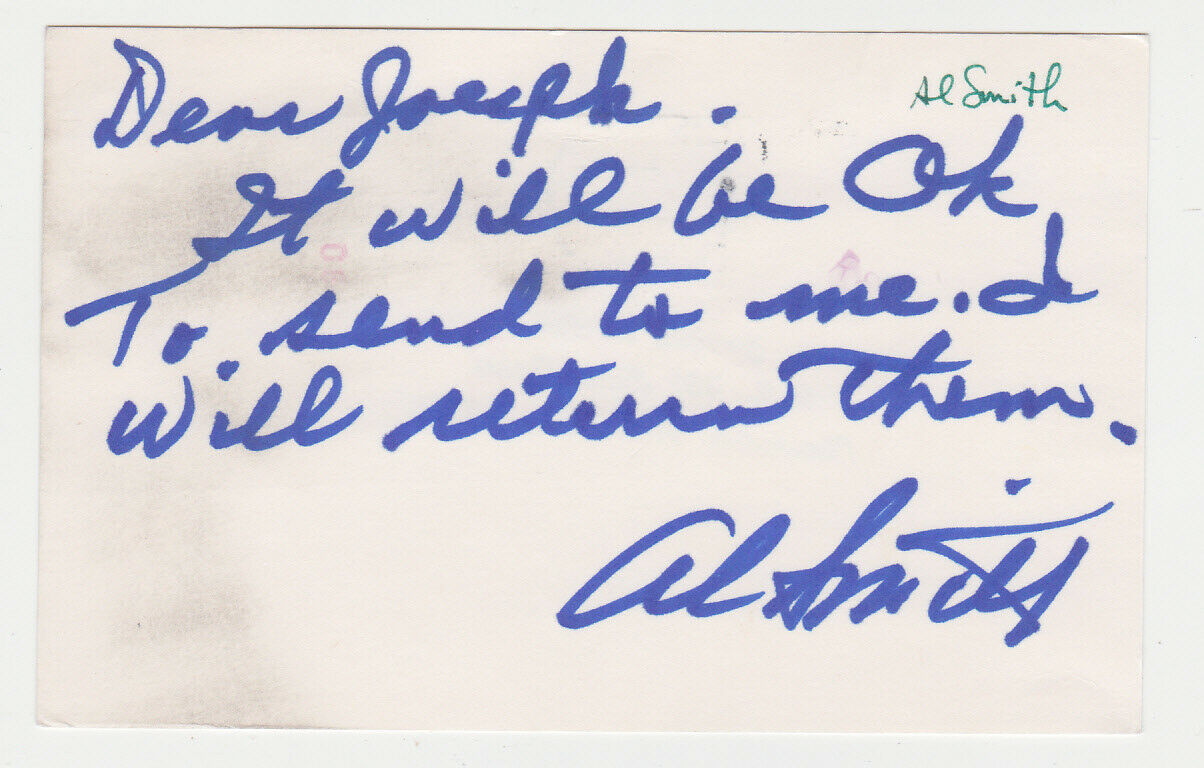 Al Smith
Dear Joseph.
It will be Ok
To send to me. I
will return them.
Al Smith